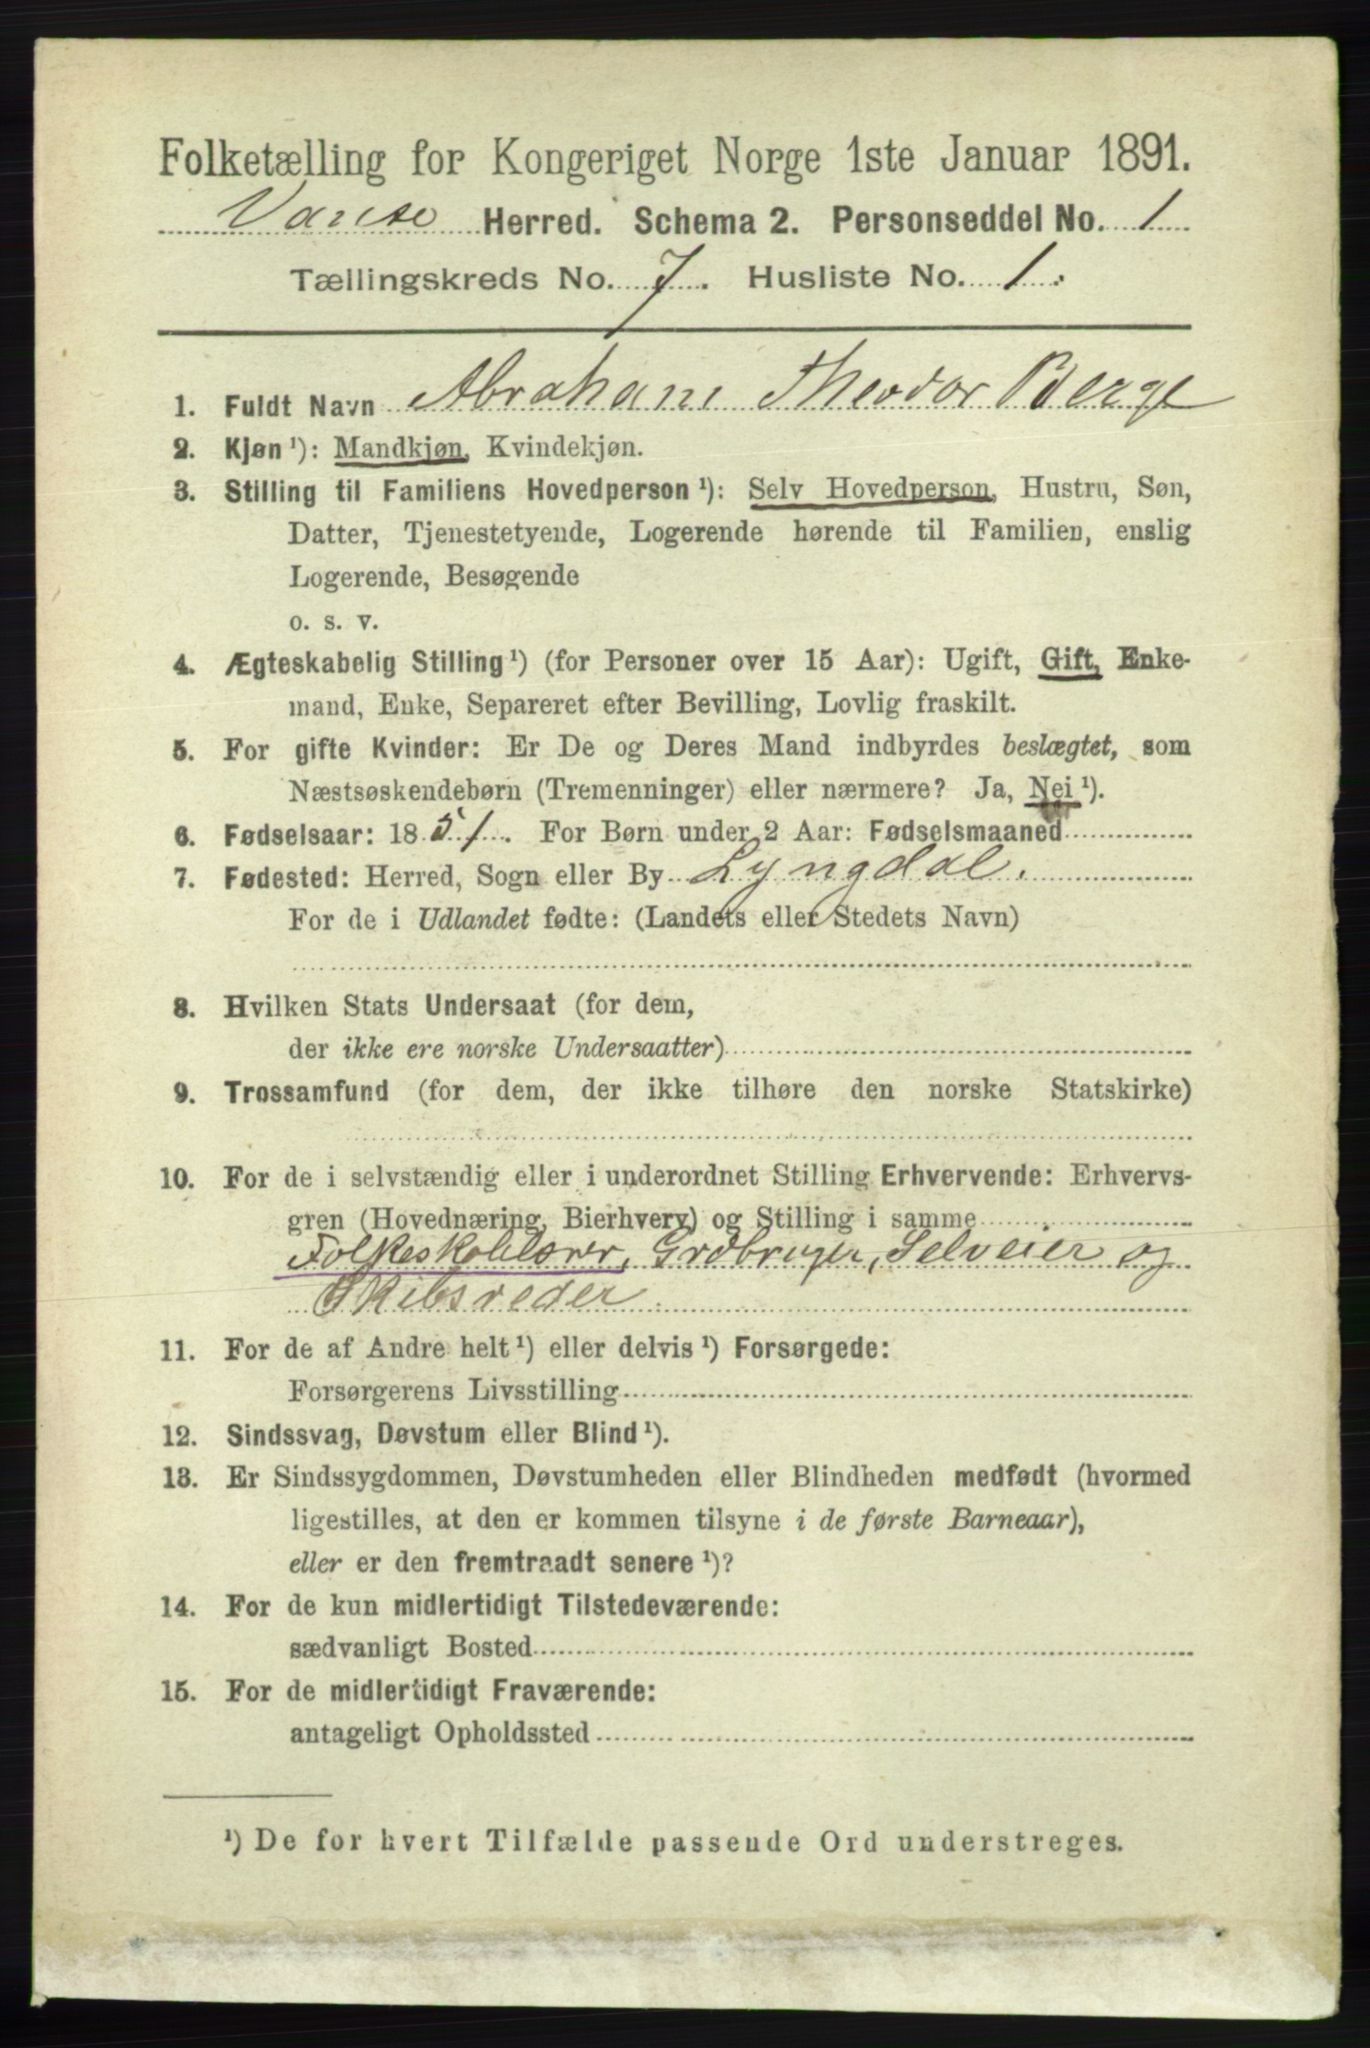 Folketælling for Kongeriget Norge 1ste Januar 1891.
Vanse Herred. Schema 2. Personseddel No. 1
Tællingskreds No. 7. Husliste No. 1.
1. Fuldt Navn Abraham Theodor Berge
2. Kjøn ¹): Mandkjøn, Kvindekjøn.
3. Stilling til Familiens Hovedperson ¹): Selv Hovedperson, Hustru, Søn,
Datter, Tjenestetyende, Logerende hørende til Familien, enslig
Logerende, Besøgende
o. s. v.
4. Ægteskabelig Stilling ¹) (for Personer over 15 Aar): Ugift, Gift, Enke-
mand, Enke, Separeret efter Bevilling, Lovlig fraskilt.
5. For gifte Kvinder: Er De og Deres Mand indbyrdes beslægtet, som
Næstsøskendebørn (Tremenninger) eller nærmere? Ja, Nei ¹).
6. Fødselsaar: 1851. For Børn under 2 Aar: Fødselsmaaned
7. Fødested: Herred, Sogn eller By Lyngdal.
For de i Udlandet fødte: (Landets eller Stedets Navn)
8. Hvilken Stats Undersaat (for dem,
der ikke ere norske Undersaatter)
9. Trossamfund (for dem, der ikke tilhøre den norske Statskirke)
10. For de i selvstændig eller i underordnet Stilling Erhvervende: Erhvervs-
gren (Hovednæring, Bierhverv) og Stilling i samme
Folkeskolelærer, Grdbruger, Selveier og
Skibsreder.
11. For de af Andre helt ¹) eller delvis ¹) Forsørgede:
Forsørgerens Livsstilling
12. Sindssvag, Døvstum eller Blind ¹).
13. Er Sindssygdommen, Døvstumheden eller Blindheden medfødt (hvormed
ligestilles, at den er kommen tilsyne i de første Barneaar),
eller er den fremtraadt senere ¹)?
14. For de kun midlertidigt Tilstedeværende:
sædvanligt Bosted
15. For de midlertidigt Fraværende:
antageligt Opholdssted
¹) De for hvert Tilfælde passende Ord understreges.